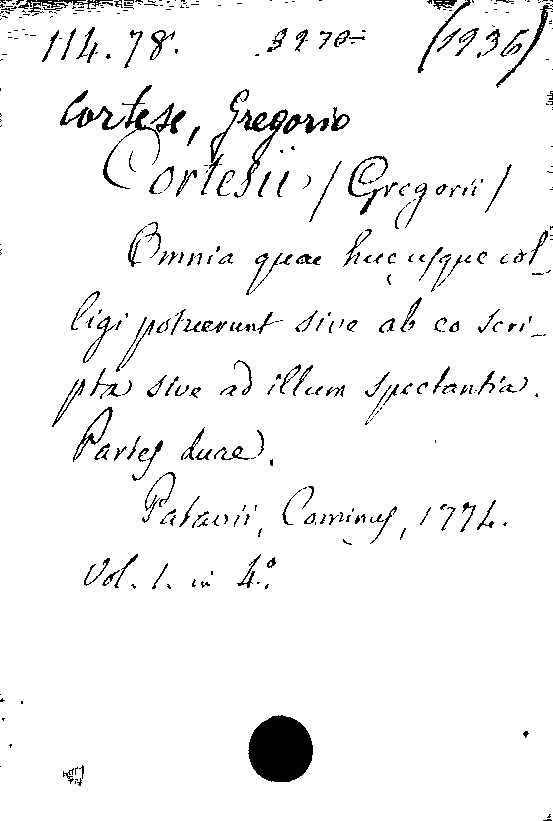 114.78. 3970= (1936)
Cortese, Gregorio
Cortesii / Gregorii /
Omnia quae huc usque col_
ligi potuerunt sive ab eo scri_
pta sive ad illum spectantia.
Partes duae.
Patavii, Cominus, 1774.
Vol. 1. in 4º.